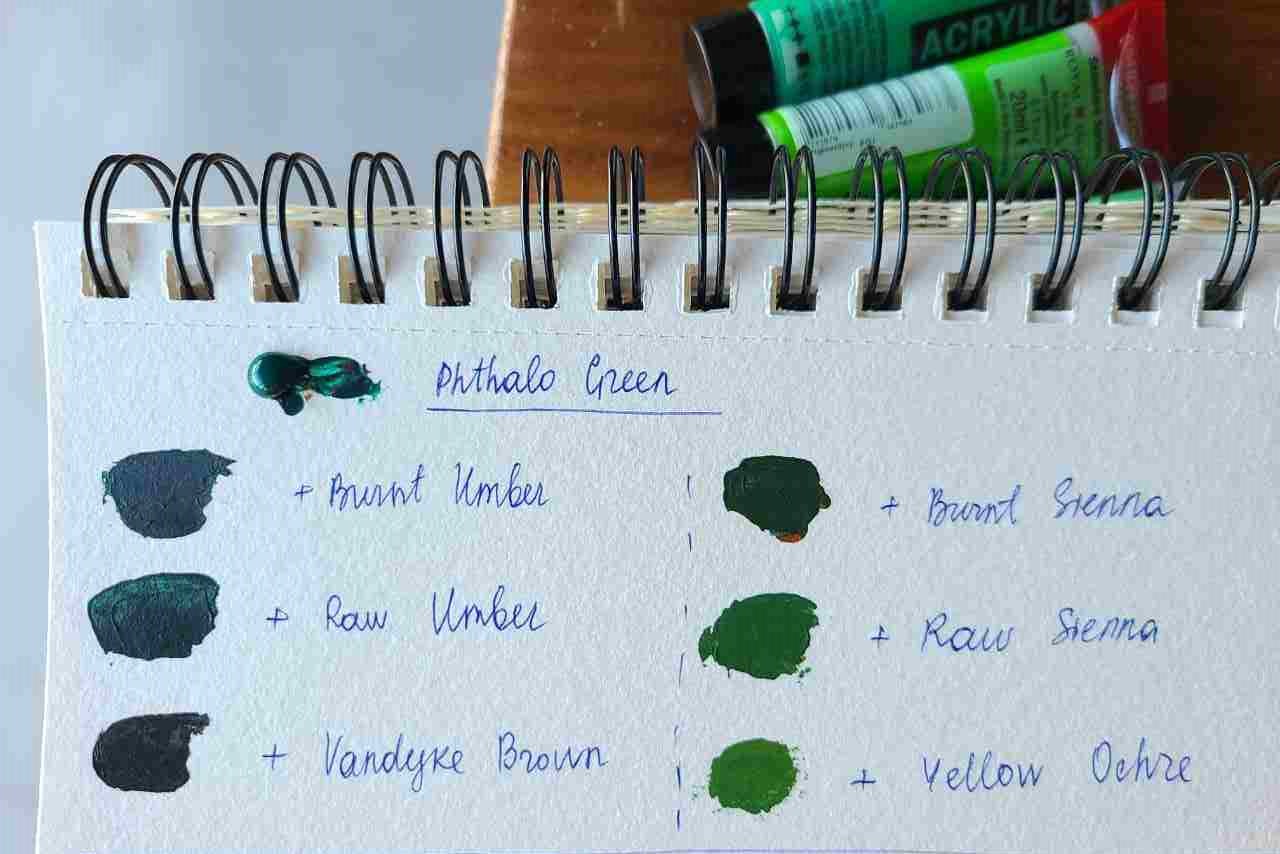 ACRYLIC
ROYAL
20ml
Phthalo Green
+ Burnt Umber
+ Raw Umber
+ Vandyke Brown
+ Burnt Sienna
+ Raw Sienna
+ Yellow Ochre